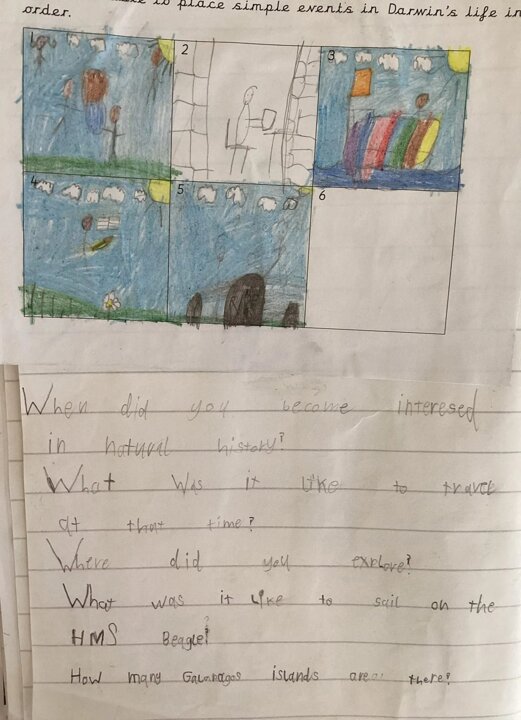 to place simple events in Darwin's life in
order.
1 2 3
4 5 6
When did you become interesed
in natural history?
What was it like to travel
at that time?
Where did you explore?
What was it like to sail on the
HMS Beagle?
How many islands are there?